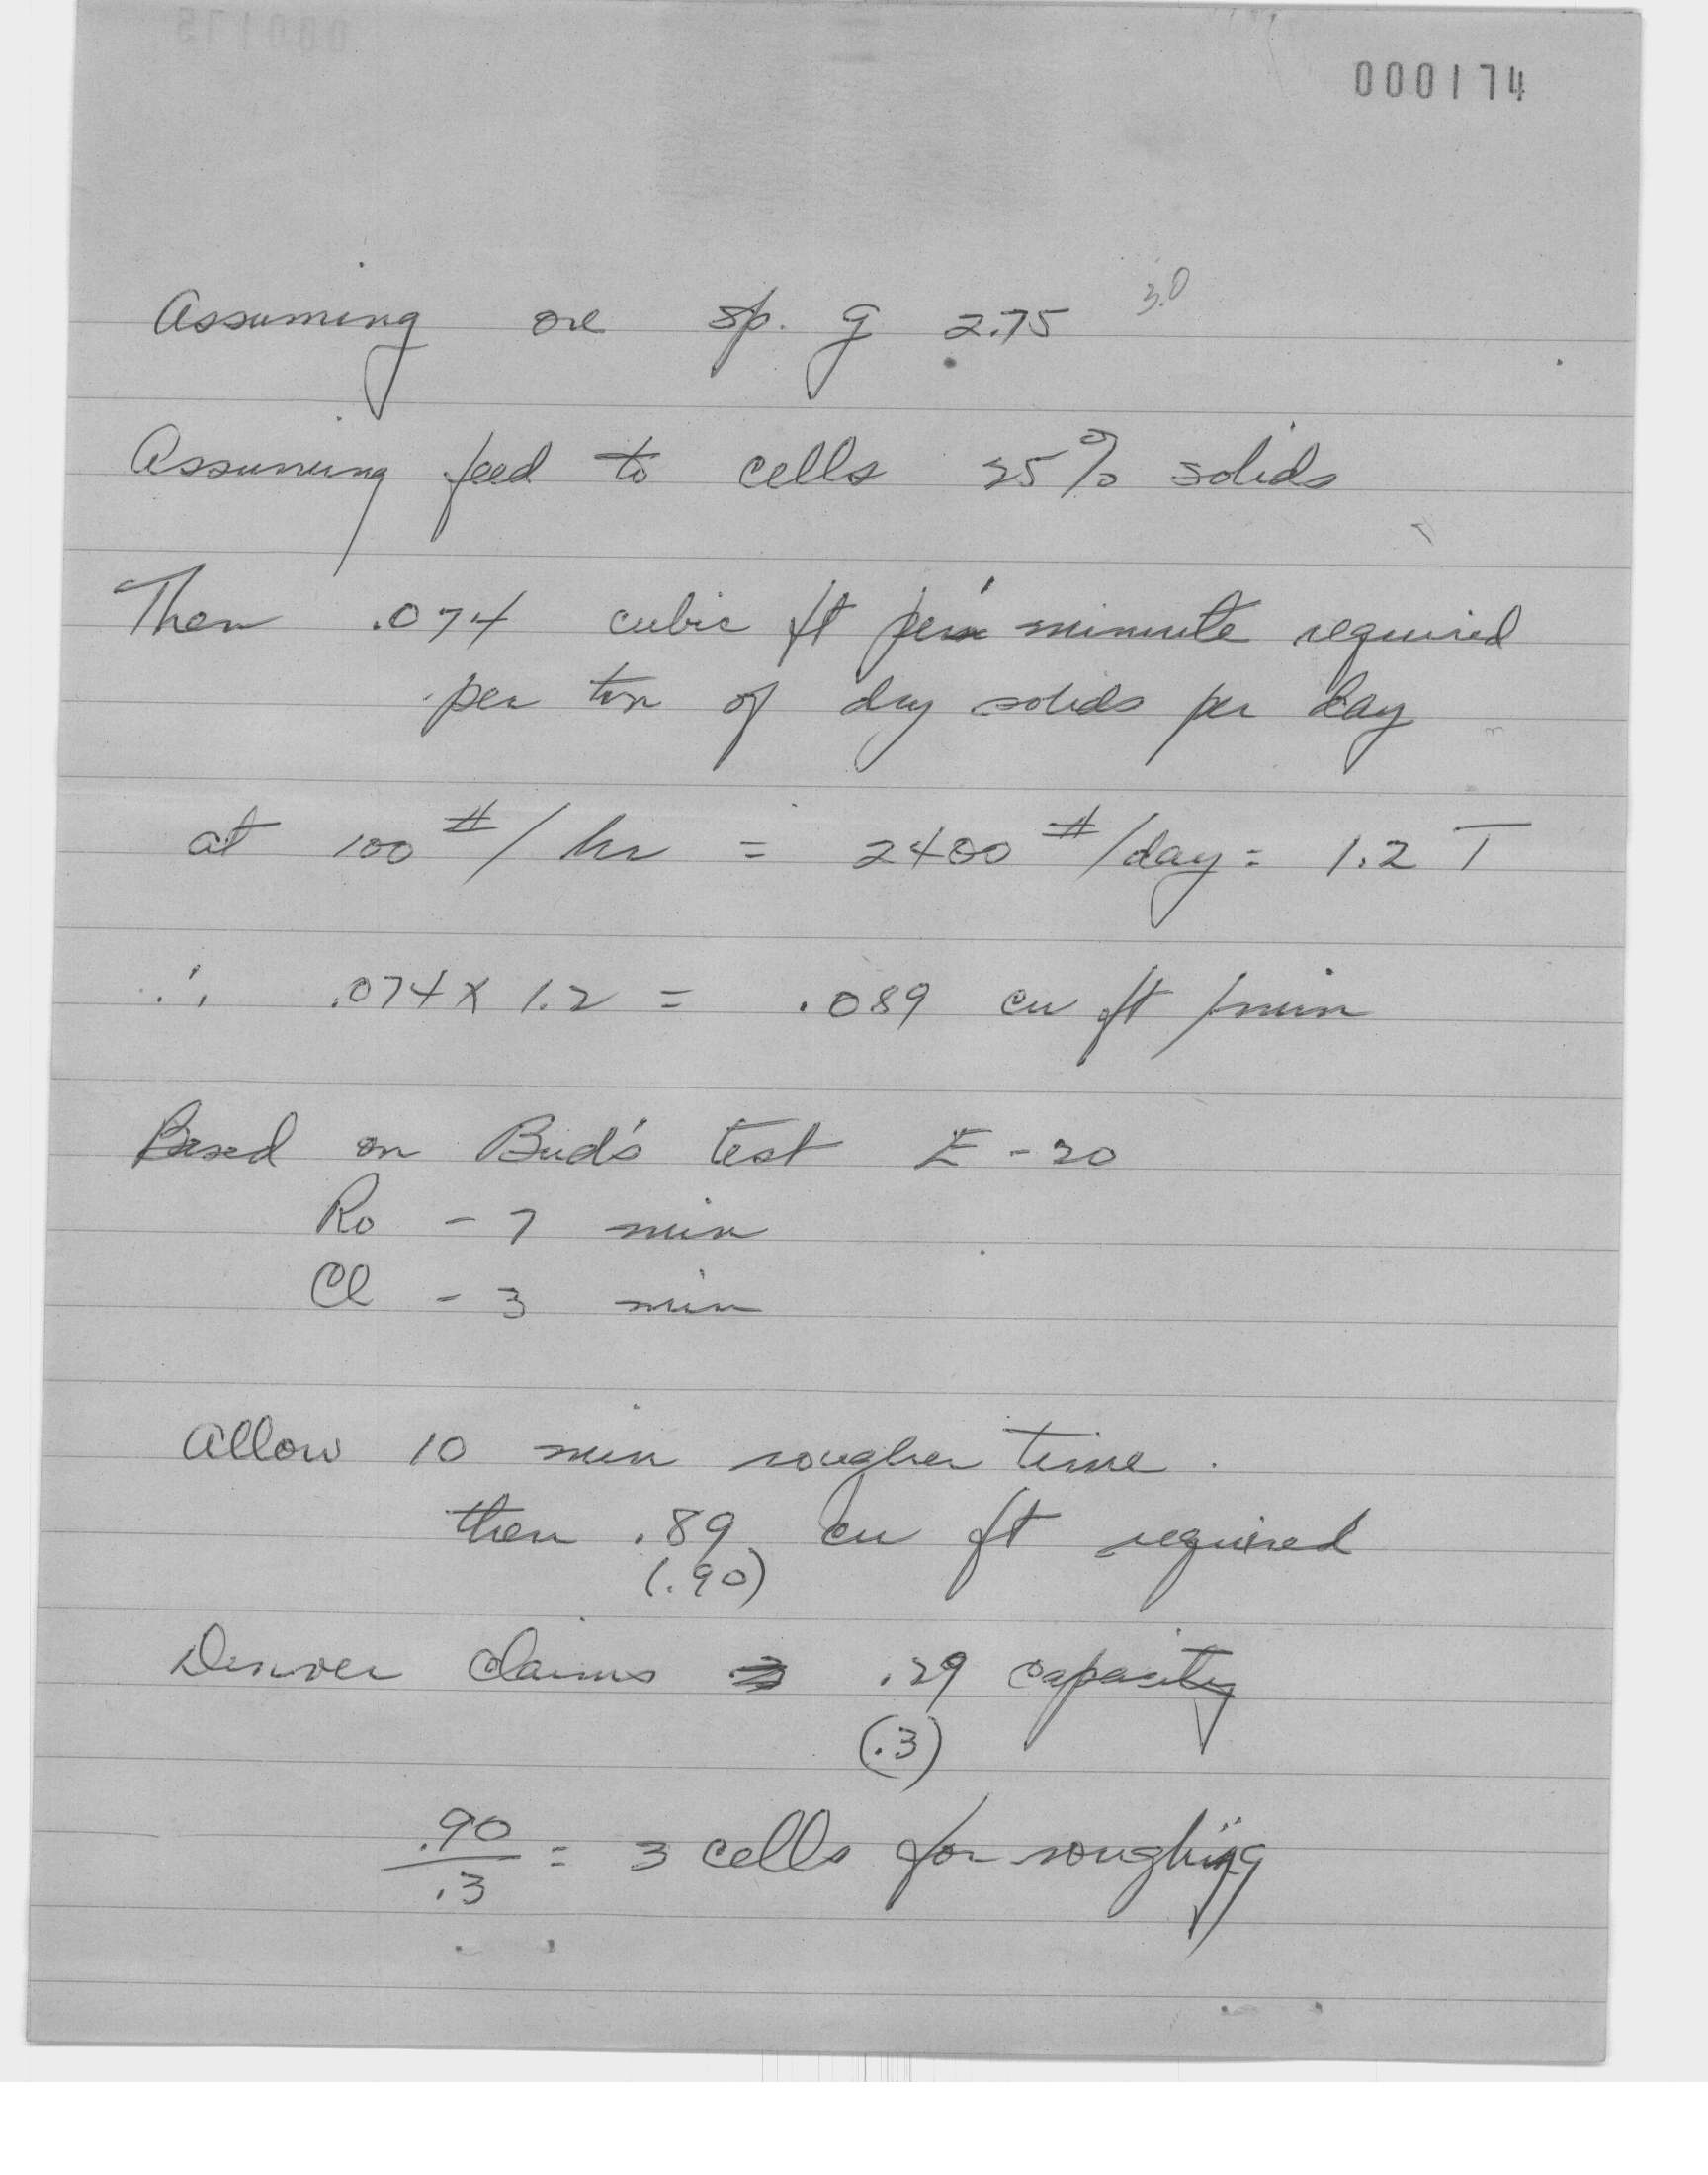 000174
Assuming ore sp. g 2.75 3.0
Assuming feed to cells 25% solids
Then .074 cubic ft per minute required
per ton of dry solids per day
at 100 #/hr = 2400 #/day = 1.2 T
∴ .074 x 1.2 = .089 cu ft /min
Based on Bud's test E-20
Ro - 7 min
Cl - 3 min
Allow 10 min rougher time.
then .89 cu ft required
(.90)
Denver claims .29 capacity
(.3)
.90
.3 = 3 cells for roughing